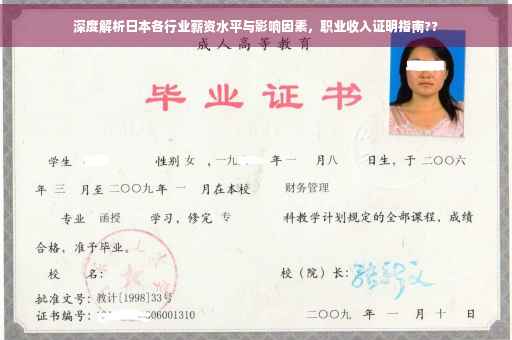 深度解析日本各行业薪资水平与影响因素，职业收入证明指南??
成人高等教育
毕业证书
学生 性别 女 ，一九 年 一 月 八 日生，于 二〇〇六
年 三 月至 二〇〇九 年 一 月在本校 财务管理
专业 函授 学习，修完 专 科教学计划规定的全部课程，成绩
合格，准予毕业。
校 名： 校（院）长：
批准文号：教计[1998]33号
证书编号： 06001310 二〇〇九 年 一 月 十 日